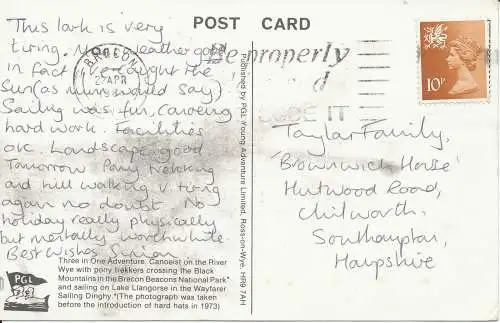 POST CARD
This lark is very
tiring. weather good
in fact I've caught the
Sun (as mum would say).
Sailing was fun, Canoeing
hard work. Facilities
OK. Landscape good
Tomorrow Pony trekking
and hill walking v. tiring
again no doubt. No
holiday really physically
but mentally worthwhile
Best Wishes Simon
Three in One Adventure. Canoeist on the River
Wye with pony trekkers crossing the Black
Mountains in the Brecon Beacons National Park*
and sailing on Lake Llangorse in the Wayfarer
Sailing Dinghy. *(The photograph was taken
before the introduction of hard hats in 1973)
PGL
Published by PGL Young Adventure Limited, Ross-on-Wye. HR9 7AH
BRECON
APR
Be properly
USE IT
10P
Taylor Family,
'Brownwich House'
Hutwood Road,
Chilworth,
Southampton,
Hampshire